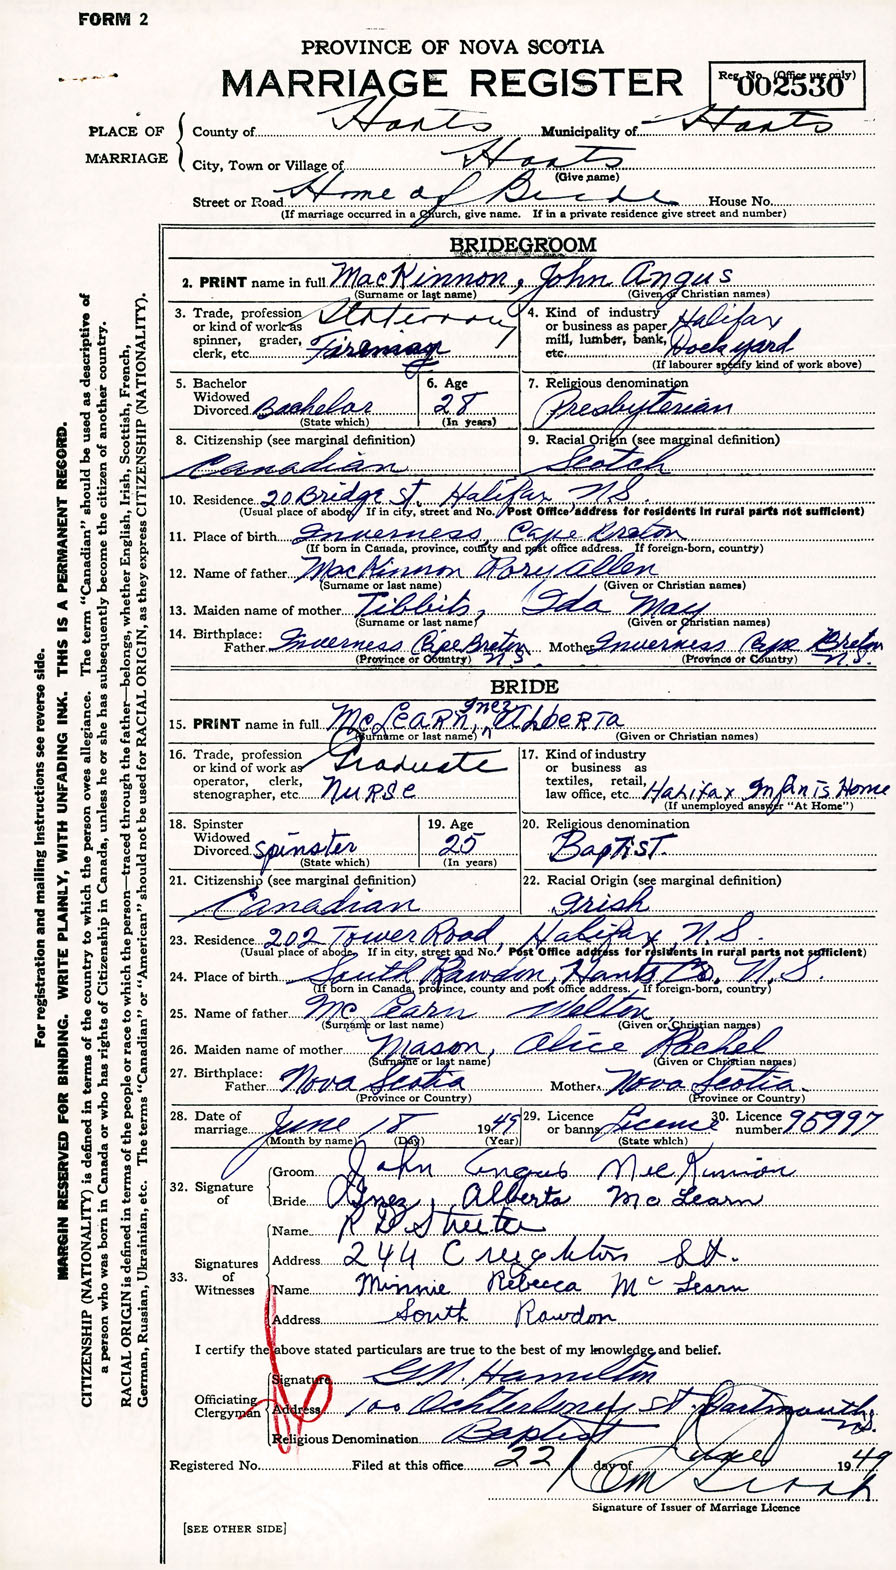 FORM 2
PROVINCE OF NOVA SCOTIA
MARRIAGE REGISTER
Reg. No. (Office use only)
002530
PLACE OF MARRIAGE
County of Hants Municipality of Hants
City, Town or Village of Hants
(Give name)
Street or Road Home of Bride House No.
(If marriage occurred in a Church, give name. If in a private residence give street and number)
BRIDEGROOM
2. PRINT name in full MacKinnon, John Angus
(Surname or last name) (Given or Christian names)
3. Trade, profession or kind of work as spinner, grader, clerk, etc. Stationary Fireman
4. Kind of industry or business as paper mill, lumber, bank, etc. Halifax Dockyard
(If labourer specify kind of work above)
5. Bachelor Widowed Divorced Bachelor
(State which)
6. Age 28
(In years)
7. Religious denomination Presbyterian
8. Citizenship (see marginal definition) Canadian
9. Racial Origin (see marginal definition) Scotch
10. Residence 20 Bridge St. Halifax N.S.
(Usual place of abode. If in city, street and No. Post Office address for residents in rural parts not sufficient)
11. Place of birth Inverness, Cape Breton
(If born in Canada, province, county and post office address. If foreign-born, country)
12. Name of father MacKinnon Rory Allen
(Surname or last name) (Given or Christian names)
13. Maiden name of mother Tibbits, Ida May
(Surname or last name) (Given or Christian names)
14. Birthplace: Father Inverness Cape Breton N.S. Mother Inverness Cape Breton N.S.
(Province or Country) (Province or Country)
BRIDE
15. PRINT name in full McLearn, Inez Alberta
(Surname or last name) (Given or Christian names)
16. Trade, profession or kind of work as operator, clerk, stenographer, etc. Graduate Nurse
17. Kind of industry or business as textiles, retail, law office, etc. Halifax Infants Home
(If unemployed answer "At Home")
18. Spinster Widowed Divorced Spinster
(State which)
19. Age 25
(In years)
20. Religious denomination Baptist.
21. Citizenship (see marginal definition) Canadian
22. Racial Origin (see marginal definition) Irish
23. Residence 202 Tower Road, Halifax, N.S.
(Usual place of abode. If in city, street and No. Post Office address for residents in rural parts not sufficient)
24. Place of birth South Rawdon, Hants Co, N.S.
(If born in Canada, province, county and post office address. If foreign-born, country)
25. Name of father McLearn Welton
(Surname or last name) (Given or Christian names)
26. Maiden name of mother Mason, Alice Rachel
(Surname or last name) (Given or Christian names)
27. Birthplace: Father Nova Scotia Mother Nova Scotia
(Province or Country) (Province or Country)
28. Date of marriage June 18 1949
(Month by name) (Day) (Year)
29. Licence or banns Licence
(State which)
30. Licence number 95997
32. Signature of
Groom John Angus MacKinnon
Bride Inez Alberta McLearn
33. Signatures of Witnesses
Name R D Streeter
Address 244 Creighton St.
Name Minnie Rebecca McLearn
Address South Rawdon
I certify the above stated particulars are true to the best of my knowledge and belief.
Officiating Clergyman
Signature G.N. Hamilton
Address 100 Ochterloney St. Dartmouth, N.S.
Religious Denomination Baptist
Registered No. Filed at this office 22 day of June 1949
Signature of Issuer of Marriage Licence
[SEE OTHER SIDE]
For registration and mailing instructions see reverse side.
MARGIN RESERVED FOR BINDING. WRITE PLAINLY, WITH UNFADING INK. THIS IS A PERMANENT RECORD.
CITIZENSHIP (NATIONALITY) is defined in terms of the country to which the person owes allegiance. The term "Canadian" should be used as descriptive of
a person who was born in Canada or who has rights of Citizenship in Canada, unless he or she has subsequently become the citizen of another country.
RACIAL ORIGIN is defined in terms of the people or race to which the person—traced through the father—belongs, whether English, Irish, Scottish, French,
German, Russian, Ukrainian, etc. The terms "Canadian" or "American" should not be used for RACIAL ORIGIN, as they express CITIZENSHIP (NATIONALITY).